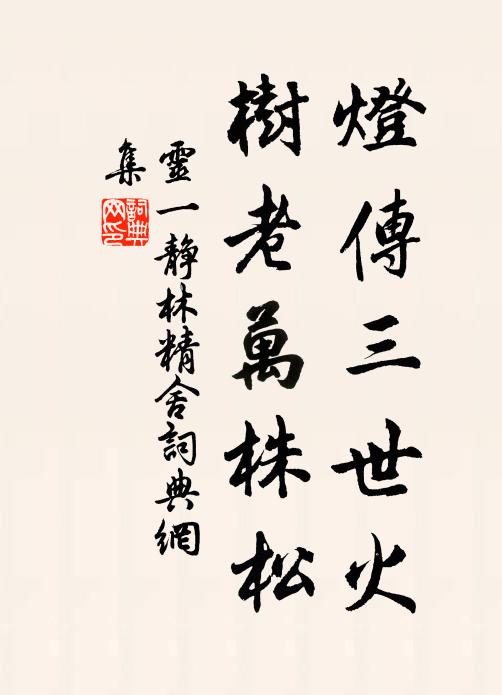 燈傳三世火
樹老萬株松
靈一靜林精舍詞典網
集
詞典
网印